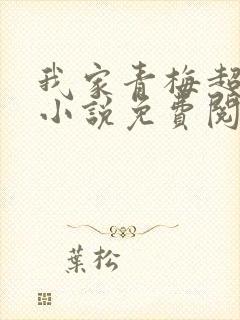 我家青梅超
小說免費閱
葉松